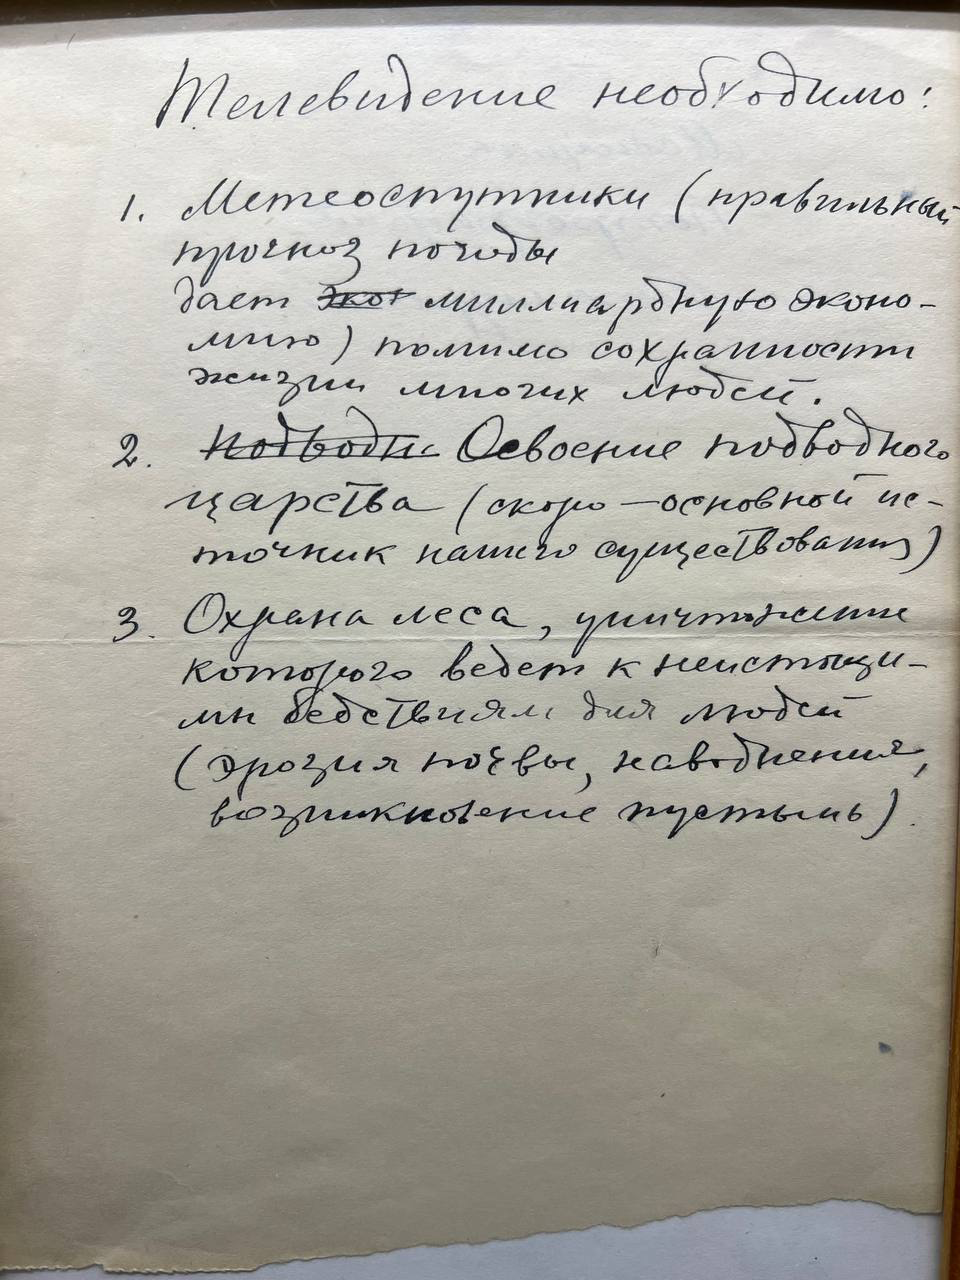 Телевидение необходимо:
1. Метеоспутники (правильный
прогноз погоды
дает эко миллиардную эконо-
мию) помимо сохранности
жизни многих людей.
2. Подводн Освоение подводного
царства (скоро — основной ис-
точник нашего существования)
3. Охрана леса, уничтожение
которого ведет к неистощи-
мы бедствиям для людей
(эрозия почвы, наводнения,
возникновение пустынь).